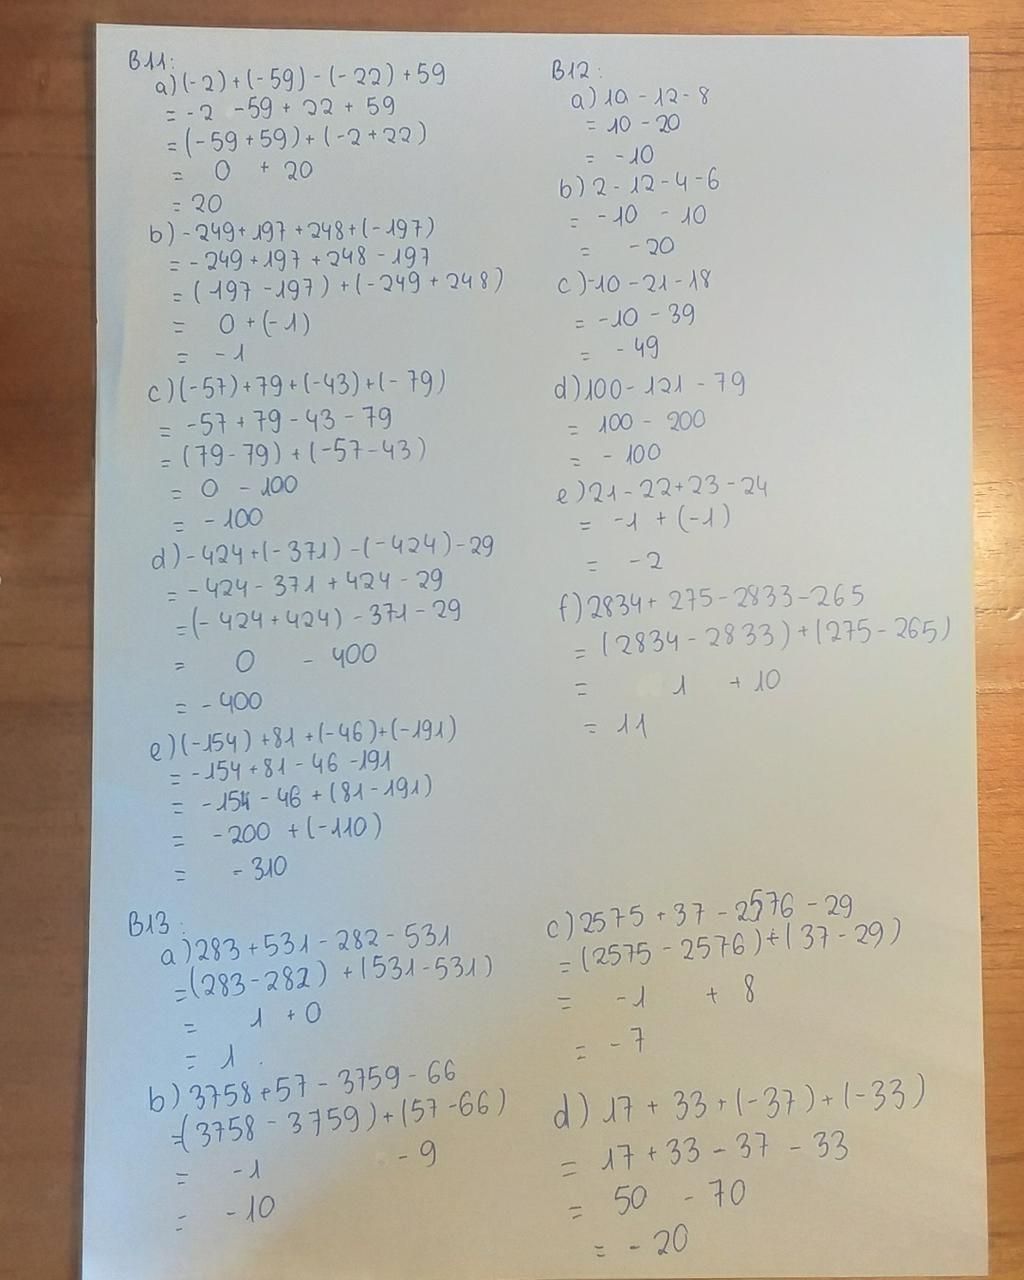 B11:
a) (-2) + (-59) - (-22) + 59
= -2 -59 + 22 + 59
= (-59 + 59) + (-2 + 22)
= 0 + 20
= 20
b) -249 + 197 + 248 + (-197)
= -249 + 197 + 248 - 197
= (197 - 197) + (-249 + 248)
= 0 + (-1)
= -1
c) (-57) + 79 + (-43) + (-79)
= -57 + 79 - 43 - 79
= (79 - 79) + (-57 - 43)
= 0 - 100
= -100
d) -424 + (-371) - (-424) - 29
= -424 - 371 + 424 - 29
= (-424 + 424) - 371 - 29
= 0 - 400
= -400
e) (-154) + 81 + (-46) + (-191)
= -154 + 81 - 46 - 191
= -154 - 46 + (81 - 191)
= -200 + (-110)
= -310
B12:
a) 10 - 12 - 8
= 10 - 20
= -10
b) 2 - 12 - 4 - 6
= -10 - 10
= -20
c) -10 - 21 - 18
= -10 - 39
= -49
d) 100 - 121 - 79
= 100 - 200
= -100
e) 21 - 22 + 23 - 24
= -1 + (-1)
= -2
f) 2834 + 275 - 2833 - 265
= (2834 - 2833) + (275 - 265)
= 1 + 10
= 11
B13:
a) 283 + 531 - 282 - 531
= (283 - 282) + (531 - 531)
= 1 + 0
= 1
b) 3758 + 57 - 3759 - 66
= (3758 - 3759) + (57 - 66)
= -1 - 9
= -10
c) 2575 + 37 - 2576 - 29
= (2575 - 2576) + (37 - 29)
= -1 + 8
= -7
d) 17 + 33 + (-37) + (-33)
= 17 + 33 - 37 - 33
= 50 - 70
= -20